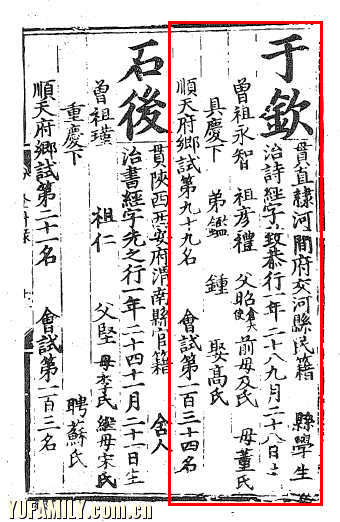 于欽
貫直隸河間府交河縣民籍 縣學生
治詩經字 致恭行一年二十八九月二十八日生
曾祖永智 祖彥禮 父昭 前母 氏 母董氏
具慶下 弟鑑 鍾 娶高氏
順天府鄉試第九十九名 會試第一百三十四名
石後
貫陝西西安府渭南縣官籍 舍人
治書經字先之行一年二十四十一月二十一日生
曾祖瑾 祖仁 父堅 母李氏 繼母宋氏
重慶下 聘蘇氏
順天府鄉試第二十一名 會試第一百三名
YUFAMILY.com.cn